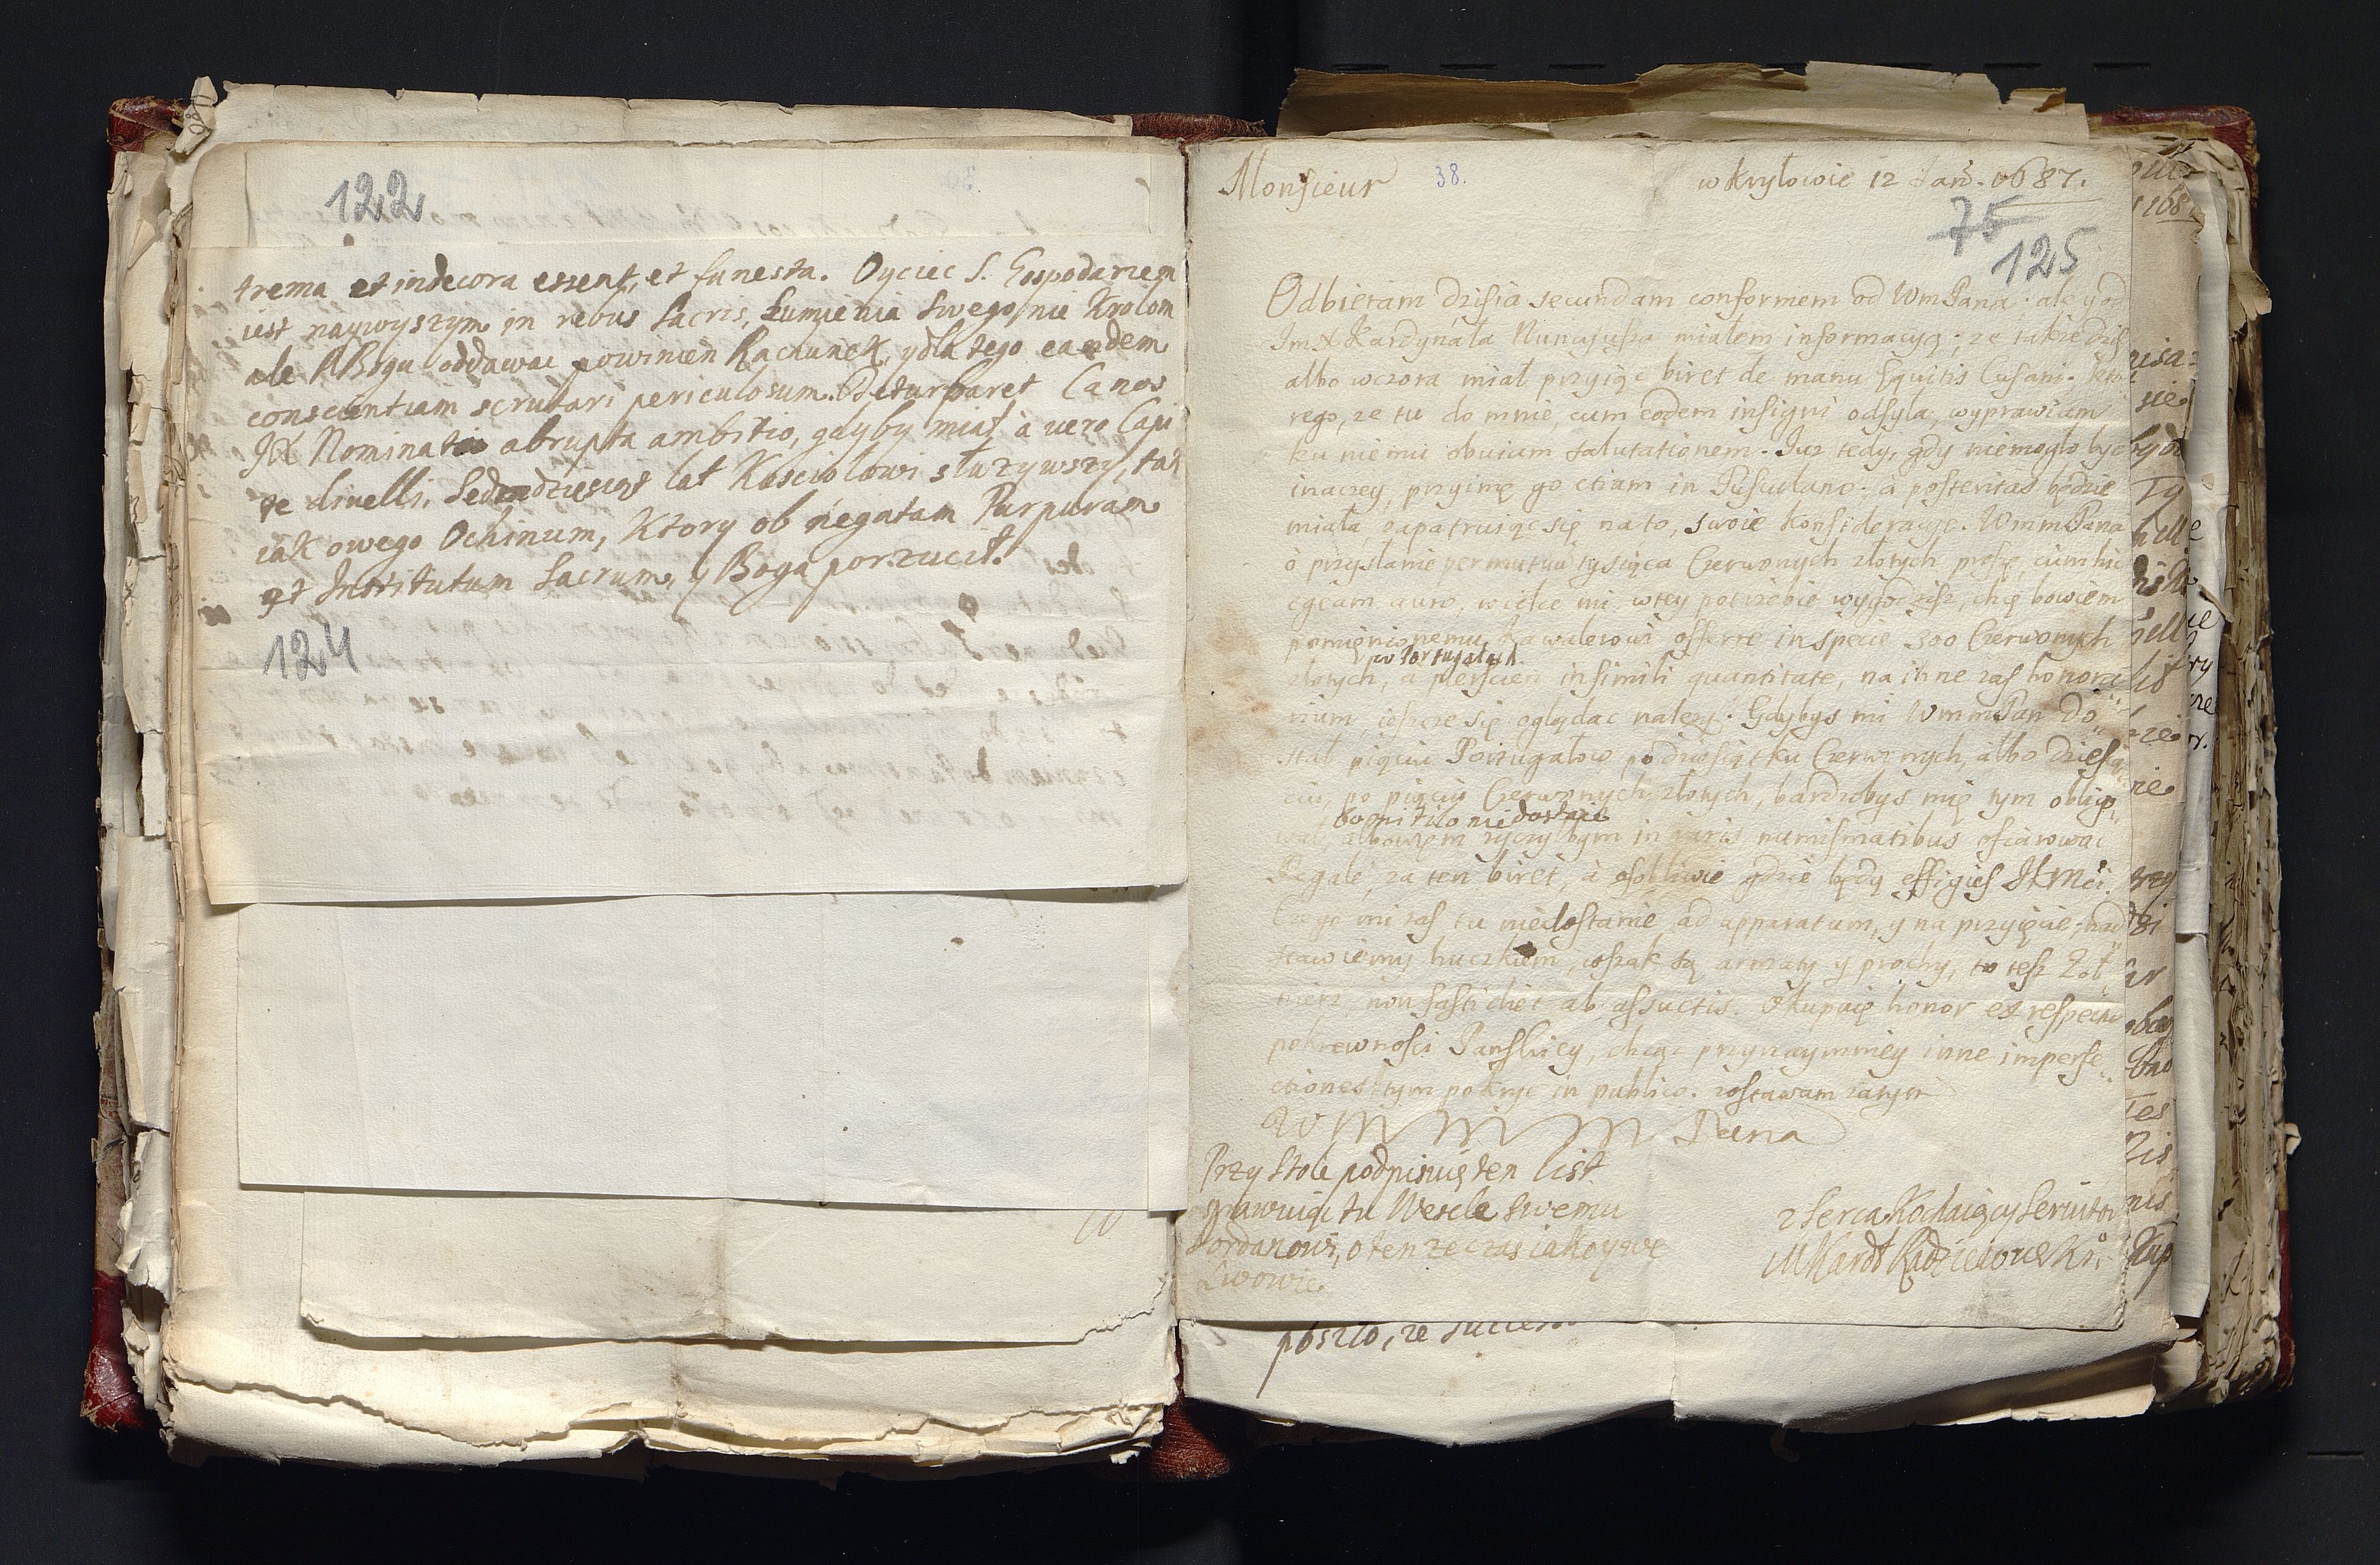 122
trema et indecora essent, et funesta. Oyciec S. Gospodarzem
iest naywyszym in rebus Sacris, Sumięnia swego, nie Krolom
ale P Bogu oddawac powinien Rachunek, y dla tego eandem
conscientiam scrutari periculosum. Deturbaret Canos
JX Nominata abrupta ambitio, gdyby miał à vero Capi
te divelli, Sedmdziesiąt lat Kosciołowi słuzywszy, tak
iak owego Ochinum, Ktory ob negatam Purpuram
et Institutum Sacrum, y Boga porzucił.
124
Monsieur
38.
w Kryłowie 12 Jan. 1687.
75
125
Odbieram dzisia secundam conformem od WmPana; ale y od
Im X Kardynała Nunciusza miałem informacyą; ze takze dzis
albo wczora miał przyiąc biret de manu Equitis Cusani. Kto
rego, ze tu do mnie, cum eodem insigni odsyla, wyprawiam
ku niemu obviam salutationem. Iuz tedy, gdy niemogło byc
inaczey, przyimę go etiam in Tusculano: à posteritas będzie
miała, zapatruiąc się na to, swoie konsideracye. WmmPana
ò przysłanie tysiąca Czerwonych złotych proszę, cum hic
egeam auro, wielce mi wtey potrzebie wygodzisz, chcę bowiem
pomięnionemu Kawalerowi offerre in specie 300 Czerwonych
w Portugałach
złotych, à pierscien in simili quantitate, na inne zas honora
rium, ieszcze się oglądac nalezy. Gdybys mi WmmPan do
stał pięciu Portugałow podziesiątku Czerwonych, albo dziesię
ciu, po pięciu Czerwonych złotych, bardzobys mię tym obligo
bo mi tilo niedostaie
wał, albowiem zyczyłbym in raris numismatibus ofiarowac
Regale, za ten biret, à osobliwie gdzie będą effigies JKMci.
Czego mi zas tu niedostanie, ad apparatum, y na przyięcie, nad
stawiemy huczkiem, wszak są armaty y prochy, to tesz Zoł
nierz non fastidiet ab assuetis. Okupuię honor et respectu
pokrewnosci Panskiey, chcąc przynaymniey inne imperfe
ctiones tym pokryc in publico. zostawam zatym
W m m m Pana
Przy Stole podpisuię ten list
sprawuiąc tu Wesele swemu
Iordanowi, o ten ze czas iako y we
Lwowie
z serca Kochaiący Servitor
M Kardł Radzieiowski
poszło, ze success